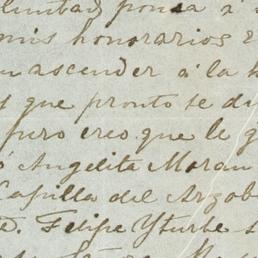 ponga a
mis honorarios
ascender á la
que pronto se
puro creo que le
Angelita Moran
Capilla del Arzob
Felipe Yturbe